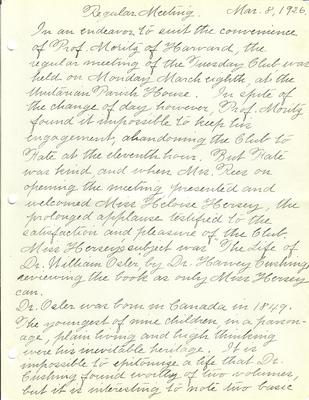 Regular Meeting. Mar. 8, 1926.
In an endeavor to suit the convenience
of Prof. Moritz of Harvard, the
regular meeting of the Tuesday Club was
held on Monday March eighth, at the
Unitarian Parish House. In spite of
the change of day however, Prof. Moritz
found it impossible to keep his
engagement, abandoning the Club to
Fate at the eleventh hour. But Fate
was kind, and when Mrs. Rees on
opening the meeting presented and
welcomed Miss Heloise Hersey, the
prolonged applause testified to the
satisfaction and pleasure of the Club.
Miss Hersey's subject was "The Life of
Dr. William Osler, by Dr. Harvey Cushing,
reviewing the book as only Miss Hersey
can.
Dr. Osler was born in Canada in 1849.
The youngest of nine children, in a parson-
age, plain living and high thinking
were his inevitable heritage. It is
impossible to epitomize a life that Dr.
Cushing found worthy of two volumes,
but it is interesting to note two basic